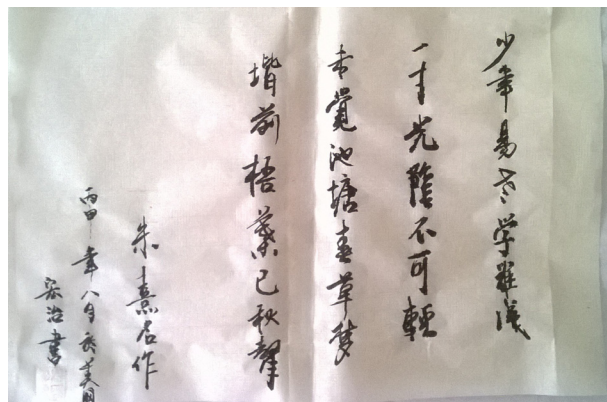 少年易老学難成
一寸光陰不可輕
未覺池塘春草夢
堦前梧葉已秋聲
朱熹名作
丙申年八月於美国
治書